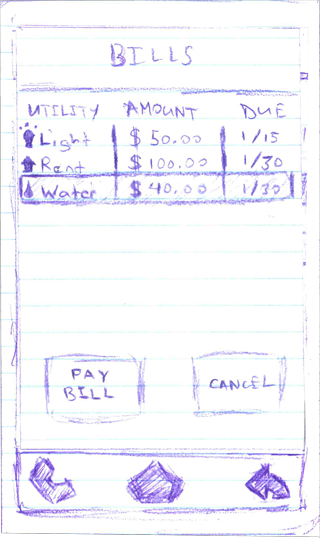 BILLS
UTILITY AMOUNT DUE
Light $50.00 1/15
Rent $100.00 1/30
Water $40.00 1/30
PAY
BILL
CANCEL